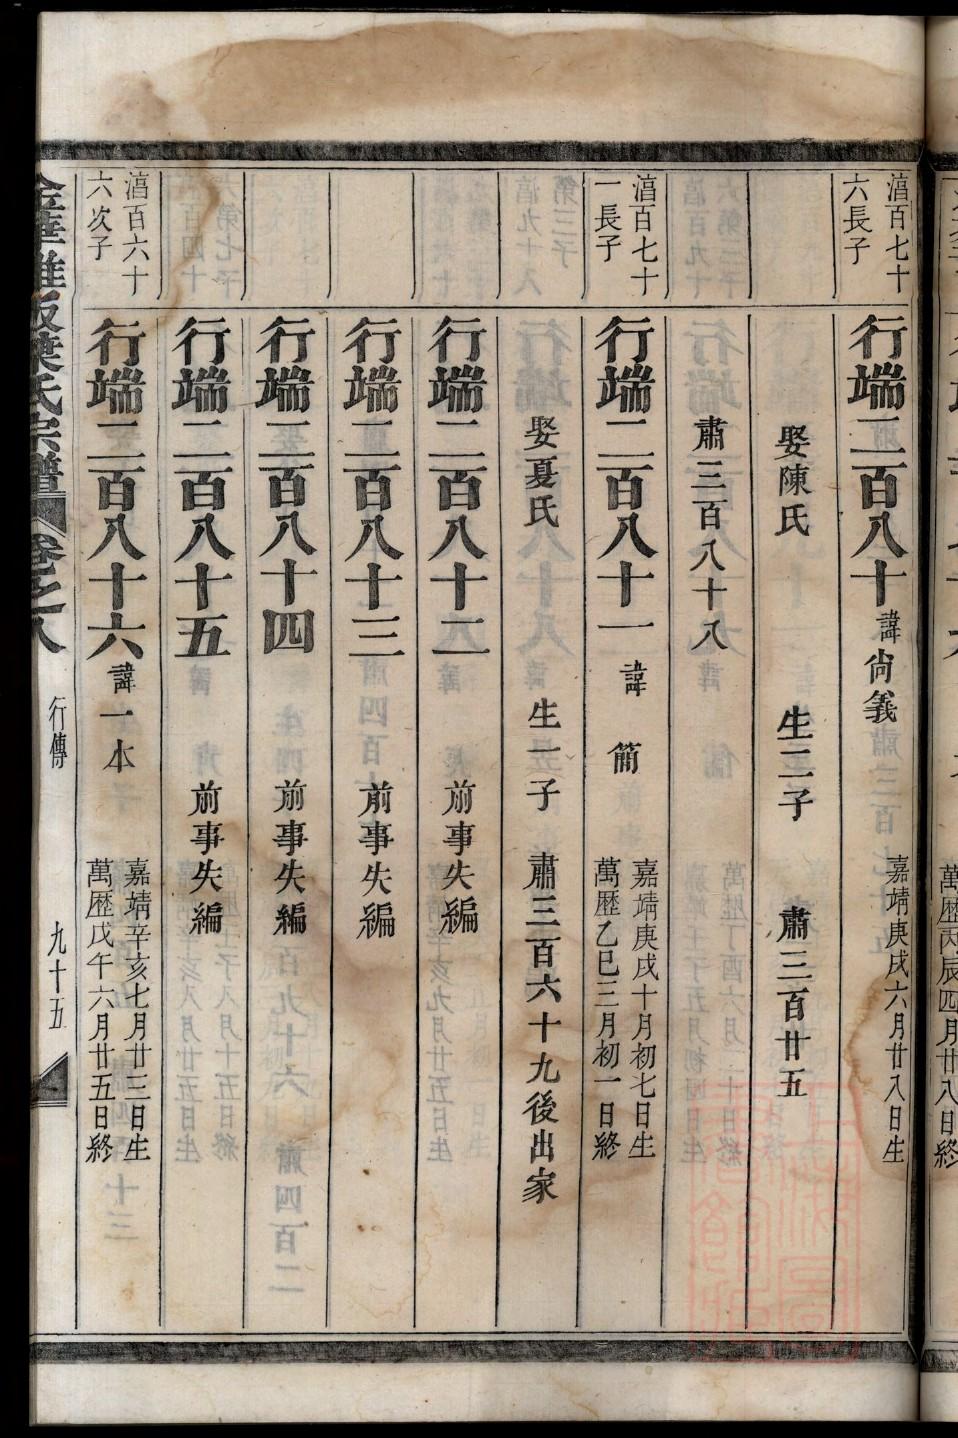 湻百七十
六長子
行端二百八十 諱尙義
嘉靖庚戌六月廿八日生
娶陳氏 生二子 肅三百廿五
肅三百八十八
湻百七十
一長子
行端二百八十一 諱 簡
嘉靖庚戌十月初七日生
萬歷乙巳三月初一日終
娶夏氏 生一子 肅三百六十九後出家
行端二百八十二 前事失編
行端二百八十三 前事失編
行端二百八十四 前事失編
行端二百八十五 前事失編
湻百六十
六次子
行端二百八十六 諱一本
嘉靖辛亥七月廿三日生
萬歷戊午六月廿五日終
葉氏宗譜 卷之八 行傳 九十五